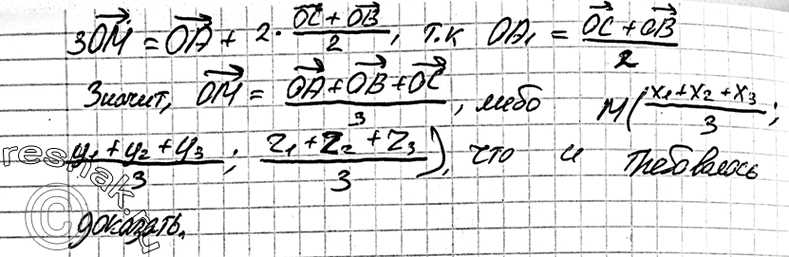 3OM = OA + 2 · (OC + OB)/2, т.к OA₁ = (OC + OB)/2
Значит, OM = (OA + OB + OC)/3, либо M((x₁ + x₂ + x₃)/3;
(y₁ + y₂ + y₃)/3; (z₁ + z₂ + z₃)/3), что и требовалось
доказать.
reshak.ru
©